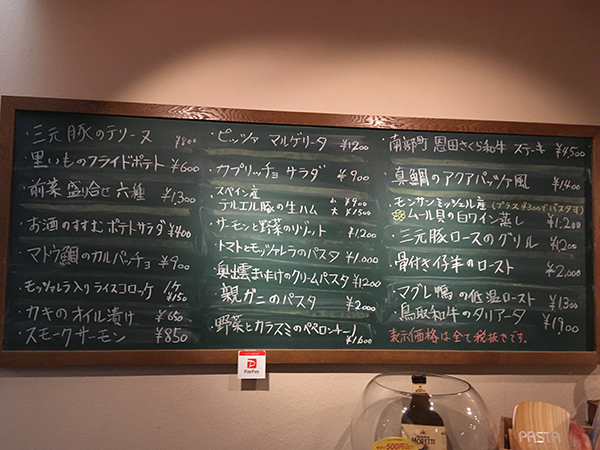 ・三元豚のテリーヌ ¥800
・里いものフライドポテト ¥600
・前菜盛り合せ 六種 ¥1300
・お酒のすすむポテトサラダ ¥400
・マトウ鯛のカルパッチョ ¥900
・モッツァレラ入りライスコロッケ 1ケ ¥150
・カキのオイル漬け ¥650
・スモークサーモン ¥850
・ピッツァ マルゲリータ ¥1200
・カプリッチョ サラダ ¥900
スペイン産
・テルエル豚の生ハム 小 ¥900 大 ¥1500
・サーモンと野菜のリゾット ¥1200
・トマトとモッツァレラのパスタ ¥1,000
・奥出雲まいたけのクリームパスタ ¥1200
・親ガニのパスタ ¥2000
・野菜とカラスミのペペロンチーノ ¥1,600
・南部町 恩田さくら和牛 ステーキ ¥4,500
・真鯛のアクアパッツァ風 ¥1,400
・モンサンミッシェル産 (プラス¥300でパスタす)
ムール貝の白ワイン蒸し ¥1,200
・三元豚ロースのグリル ¥1200
・骨付き仔羊のロースト ¥2,000
・マグレ鴨の低温ロースト ¥1300
・鳥取和牛のタリアータ ¥1900
表示価格は全て税抜きです。
PayPay
MORETTI
500円
PASTA